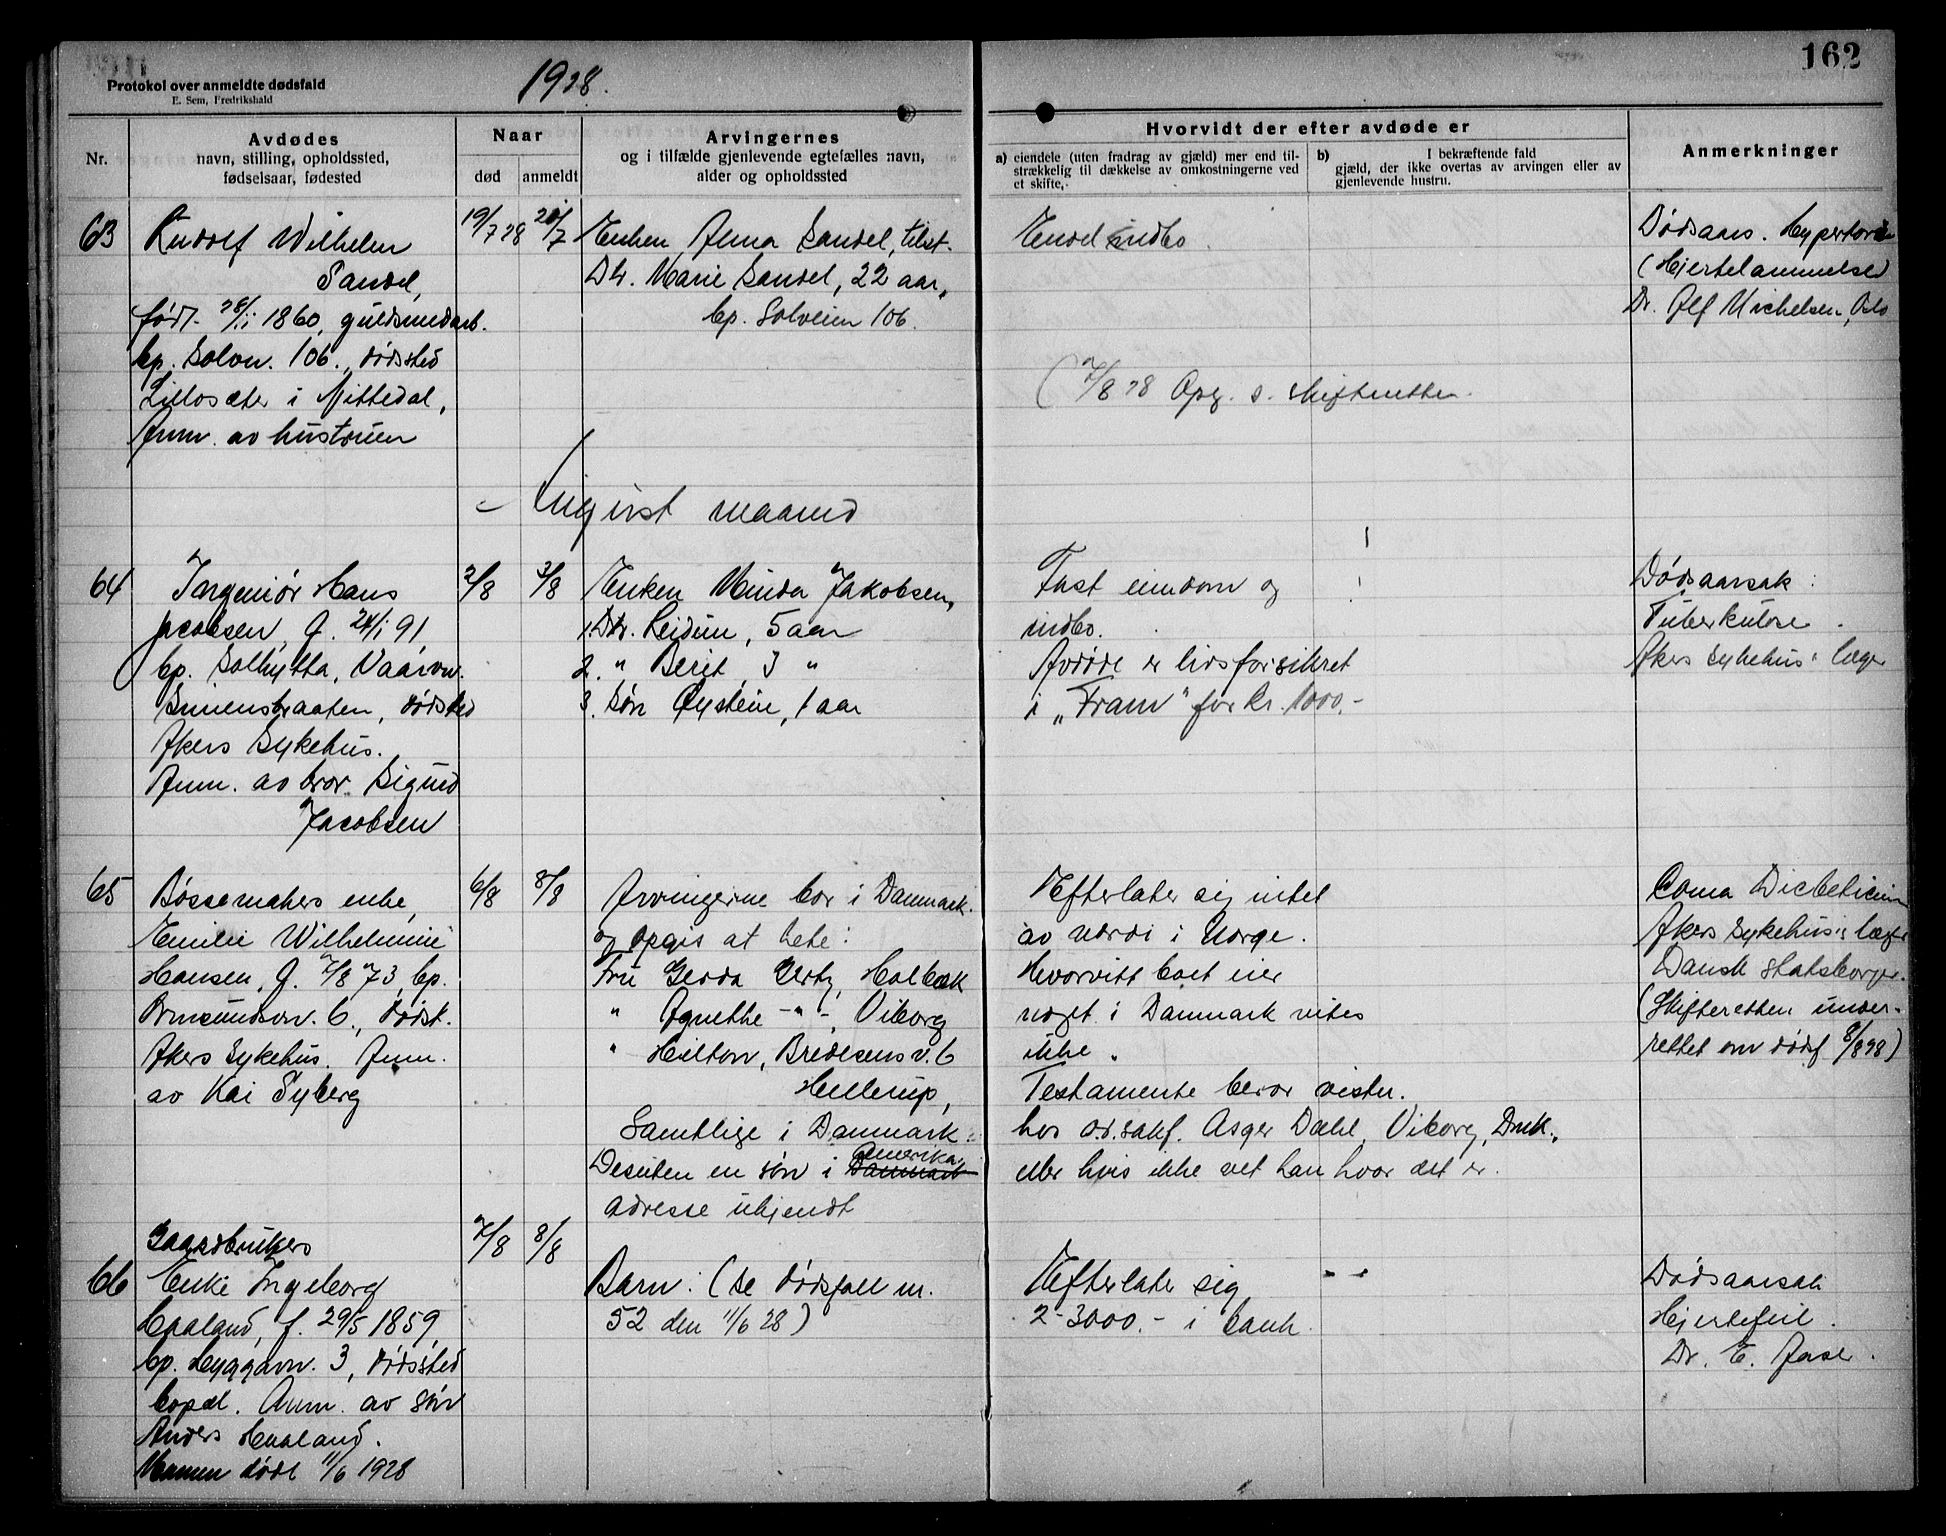 162
Protokol over anmeldte dødsfald
E. Sem, Fredrikshald
1928.
Nr.
Avdødes
navn, stilling, opholdssted,
fødselsaar, fødested
Naar
død
anmeldt
Arvingernes
og i tilfælde gjenlevende egtefælles navn,
alder og opholdssted
Hvorvidt der efter avdøde er
a) eiendele (uten fradrag av gjæld) mer end til-
strækkelig til dækkelse av omkostningerne ved
et skifte,
b) I bekræftende fald
gjæld, der ikke overtas av arvingen eller av
gjenlevende hustru.
Anmerkninger
63
Rudolf Wilhelm
Sandel,
født 28/11 1860, guldsmedarb.
bp. Solvn. 106., dødssted
Lillosæter i Nittedal,
Anm. av hustruen
19/7 28
20/7
Enken Anna Sandel, tilst.
Dtr. Marie Sandel, 22 aar,
bp. Solveien 106.
Endel indbo.
(7/8 28 Opg. s. skifteretten.
Dødsaars.
(Hjertelammelse)
Dr. Alf Michelsen, Oslo
August maaned
64
Ingeniør Hans
Jacobsen, f. 24/1 91
bp. Solhytta, Vaarvn.
Simensbraaten, dødsted
Akers Sykehus.
Anm. av bror Sigurd
Jacobsen
2/8
3/8
Enken Minda Jakobsen,
1. Dtr. Reidun, 5 aar
2. " Berit 3 "
3. Søn Øystein, 1 aar
Fast eiendom og
indbo.
Avdøde er livsforsikret
i „Fram" for kr. 1000.-
Dødsaarsak:
Tuberkulose.
Akers Sykehus' læge
65
Bøssemakers enke,
Emilie Wilhelmine
Hansen, f. 7/8 73, bp.
Ormsundsvn. 6., dødst.
Akers Sykehus. Anm.
av Kai Syberg
6/8
8/8
Arvingerne bor i Danmark.
og opgis at hete:
Fru Gerda Gertz, Holbæk
" Agnethe -"-, Viborg
" Hilton, Bredesens v. 6
Hellerup,
Samtlige i Danmark.
Desuten en søn i Danmark Amerika.
adresse ukjendt
Efterlater sig intet
av værdi i Norge.
Hvorvidt boet eier
noget i Danmark vites
ikke.
Testamente beror visstn.
hos o.r.sakf. Asger Dahl, Viborg, Dmk.,
eller hvis ikke vet han hvor det er.
Coma Diabeticum
Akers Sykehus's læge
Dansk statsborger.
(Skifteretten under-
rettet om dødsf 8/8 28)
66
Gaardbrukers
Enke Ingeborg
Haaland, f. 29/5 1859,
bp. Hyggavn. 3, dødssted
bopæl. Anm. av søn
Anders Haaland.
Mannen døde 11/6 1928
7/8
8/8
Barn: (se dødsfall nr.
52 den 11/6 28)
Efterlater sig
2-3000.- i bank.
Dødsaarsak
Hjertefeil.
Dr. E.